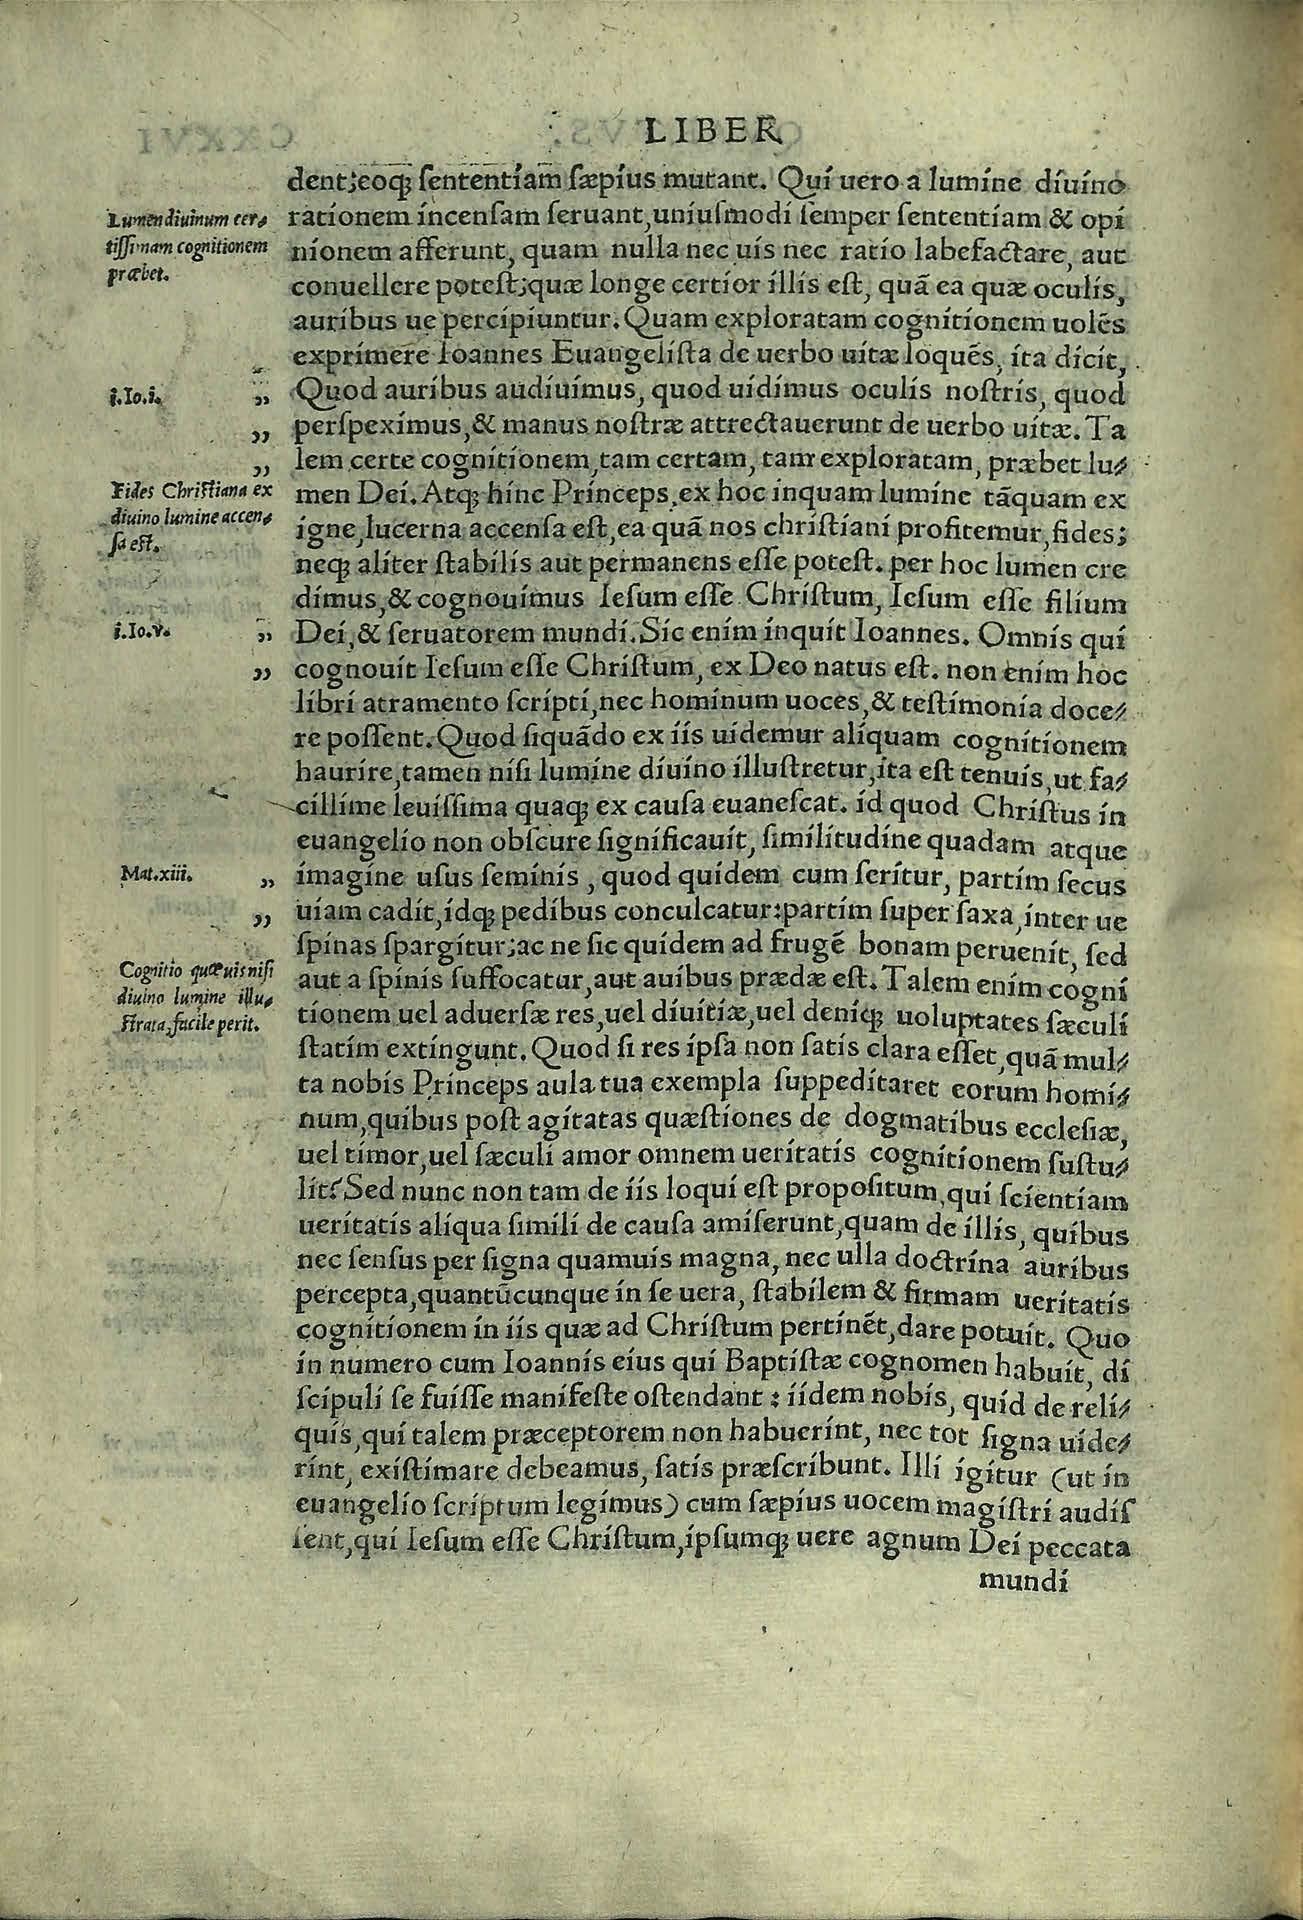 LIBER
dent; eoq; ſententiam ſæpius mutant. Qui uero a lumine diuino
Lumen diuinum cer-
tiſſimam cognitionem
præbet.
rationem incenſam ſeruant, uniuſmodi ſemper ſententiam & opi
nionem afferunt, quam nulla nec uis nec ratio labefactare, aut
conuellere poteſt; quæ longe certior illis eſt, quã ea quæ oculis,
auribus ue percipiuntur. Quam exploratam cognitionem uolẽs
exprimere Ioannes Euangeliſta de uerbo uitæ loquẽs, ita dicit,
i.Io.i.
„ Quod auribus audiuimus, quod uidimus oculis noſtris, quod
„ perſpeximus, & manus noſtræ attrectauerunt de uerbo uitæ. Ta
„ lem certe cognitionem, tam certam, tam exploratam, præbet lu-
Fides Chriſtiana ex
diuino lumine accen-
ſa eſt.
men Dei. Atq; hinc Princeps, ex hoc inquam lumine tãquam ex
igne, lucerna accenſa eſt, ea quã nos chriſtiani profitemur, fides;
neq; aliter ſtabilis aut permanens eſſe poteſt. per hoc lumen cre
dimus, & cognouimus Ieſum eſſe Chriſtum, Ieſum eſſe filium
i.Io.v.
„ Dei, & ſeruatorem mundi. Sic enim inquit Ioannes. Omnis qui
„ cognouit Ieſum eſſe Chriſtum, ex Deo natus eſt. non enim hoc
libri atramento ſcripti, nec hominum uoces, & teſtimonia doce-
re poſſent. Quod ſiquãdo ex iis uidemur aliquam cognitionem
haurire, tamen niſi lumine diuino illuſtretur, ita eſt tenuis, ut fa-
cillime leuiſſima quaq; ex cauſa euaneſcat. id quod Chriſtus in
euangelio non obſcure ſignificauit, ſimilitudine quadam atque
Mat.xiii.
„ imagine uſus ſeminis, quod quidem cum ſeritur, partim ſecus
„ uiam cadit, idq; pedibus conculcatur: partim ſuper ſaxa, inter ue
ſpinas ſpargitur; ac ne ſic quidem ad frugẽ bonam peruenit, ſed
Cognitio quæuis niſi
diuino lumine illu-
ſtrata, facile perit.
aut a ſpinis ſuffocatur, aut auibus prædæ eſt. Talem enim cogni
tionem uel aduerſæ res, uel diuitiæ, uel deniq; uoluptates ſæculi
ſtatim extingunt. Quod ſi res ipſa non ſatis clara eſſet, quã mul-
ta nobis Princeps aula tua exempla ſuppeditaret eorum homi-
num, quibus poſt agitatas quæſtiones de dogmatibus eccleſiæ,
uel timor, uel ſæculi amor omnem ueritatis cognitionem ſuſtu-
lit? Sed nunc non tam de iis loqui eſt propoſitum, qui ſcientiam
ueritatis aliqua ſimili de cauſa amiſerunt, quam de illis, quibus
nec ſenſus per ſigna quamuis magna, nec ulla doctrina auribus
percepta, quantũcunque in ſe uera, ſtabilem & firmam ueritatis
cognitionem in iis quæ ad Chriſtum pertinẽt, dare potuit. Quo
in numero cum Ioannis eius qui Baptiſtæ cognomen habuit, di
ſcipuli ſe fuiſſe manifeſte oſtendant: iidem nobis, quid de reli-
quis, qui talem præceptorem non habuerint, nec tot ſigna uide-
rint, exiſtimare debeamus, ſatis præſcribunt. Illi igitur (ut in
euangelio ſcriptum legimus) cum ſæpius uocem magiſtri audiſ
ſent, qui Ieſum eſſe Chriſtum, ipſumq; uere agnum Dei peccata
mundi